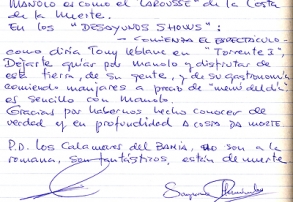 MANOLO es como el "LAROUSSE" de la Costa
de la Muerte.
En los "DESAYUNOS SHOWS":
- COMIENZA EL ESPECTÁCULO -
como diría Tony leblanc en "Torrente 3",
Dejarte guiar por Manolo y disfrutar de
esta tierra, de su gente, y de su gastronomía
comiendo manjares a precio de "menú del día"
es sencillo con Manolo.
Gracias por habernos hecho conocer de
verdad y en profundidad A COSTA DA MORTE.
P.D. los Calamares del BAHÍA, NO son a la
romana, son fantásticos, están de muerte